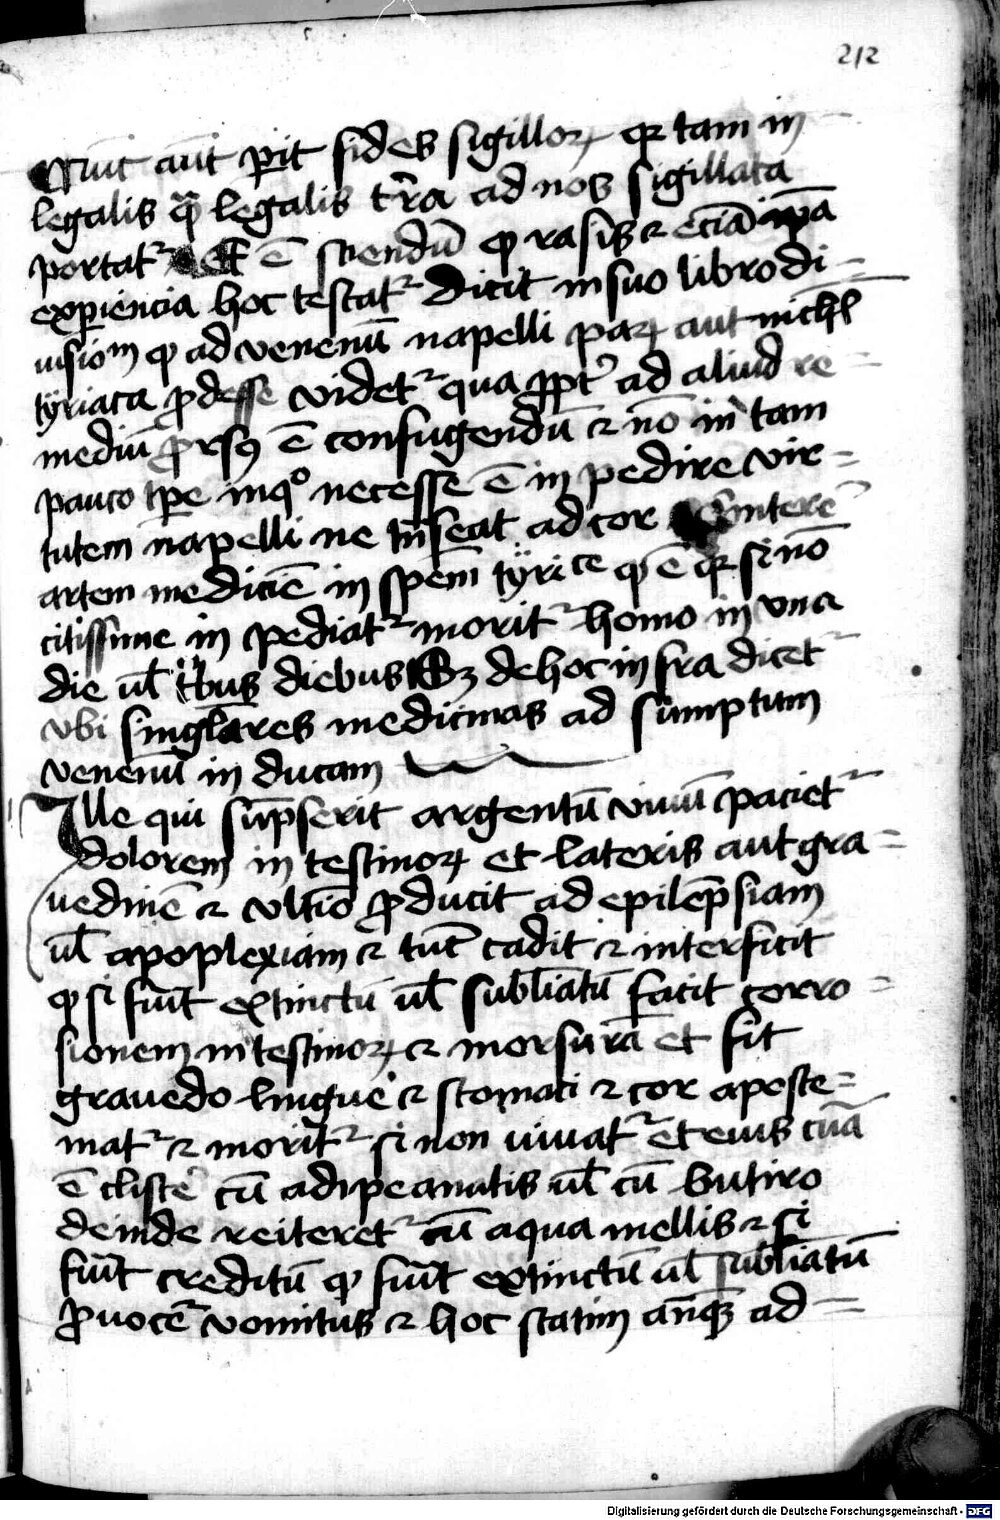 212
Nunc aut perit fides sigillorꝫ qr tam in
legalis quam legalis tr̄a ad nos sigillata
portatr Et ē sciendū ꝙ rasis ⁊ eciā ipa
experiencia hoc testatr Dicit in suo libro di=
uisionū ꝙ ad venenū napelli parꝫ aut nichil
tyriaca ꝓdesse videtr qua ꝓptr ad aliud re=
mediū ꝓrsus ē confugendū ⁊ nō in tam
pauco tpe in quo necesse ē in pedire vir=
tutem napelli ne tn̄seat ad cor
artem medicie in spēm tyrice qꝫ ē qr si nō
citissime in pediatr moritr homo in vna
die ul tribus diebus Sꝫ de hoc in fra dicetr
vbi singlares medicinas ad sumptum
venenū in ducam
Ille qui sūpserit argentū viuū pacietr
dolorem in testinorꝫ et lateris aut gra=
uedinē ⁊ vltiō ꝓducit ad epilepsiam
ul apoplexiam ⁊ tūc cadit ⁊ interficit
ꝙ si fuit extinctū ul sublīatū facit corro=
sionem in testinorꝫ ⁊ morsurā et fit
grauedo lingue ⁊ stomaci ⁊ cor aposte=
matr ⁊ moritr si non iuuatr et eius cura
ē clistē cū adipe anatis ul cū butiro
deinde reiteretr cū aqua mellis ⁊ si
fuit creditū ꝙ fuit extinctū ul sublīatū
ꝓuocē vomitus ⁊ hoc statim anqꝫ ad=
Digitalisierung gefördert durch die Deutsche Forschungsgemeinschaft - DFG